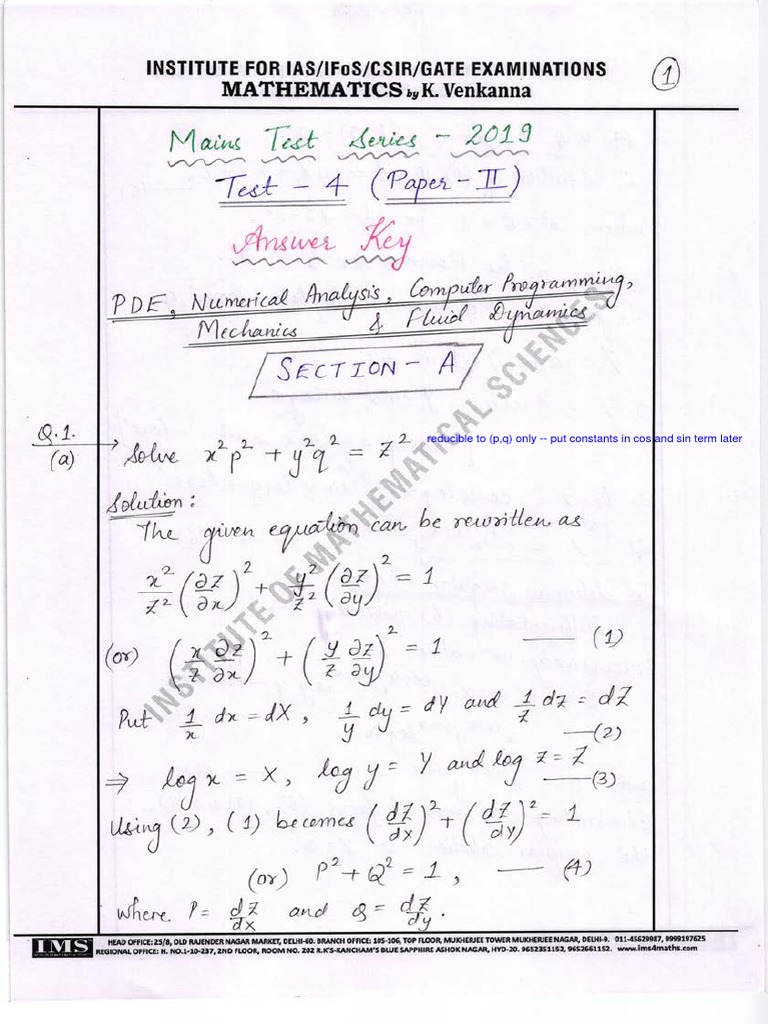 INSTITUTE FOR IAS/IFoS/CSIR/GATE EXAMINATIONS
MATHEMATICS by K. Venkanna
1
Mains Test Series - 2019
Test - 4 (Paper - II)
Answer Key
PDE, Numerical Analysis, Computer Programming,
Mechanics & Fluid Dynamics
SECTION - A
Q.1.
(a)
Solve x²p² + y²q² = z²
reducible to (p,q) only -- put constants in cos and sin term later
Solution:
The given equation can be rewritten as
x²/z² (∂z/∂x)² + y²/z² (∂z/∂y)² = 1
(or) (x/z ∂z/∂x)² + (y/z ∂z/∂y)² = 1 —— (1)
Put 1/x dx = dX, 1/y dy = dY and 1/z dz = dZ
—— (2)
⇒ log x = X, log y = Y and log z = Z
—— (3)
Using (2), (1) becomes (dZ/dX)² + (dZ/dY)² = 1
(or) P² + Q² = 1, —— (4)
where P = dZ/dX and Q = dZ/dy.
INSTITUTE OF MATHEMATICAL SCIENCES
IMS
HEAD OFFICE: 25/8, OLD RAJENDER NAGAR MARKET, DELHI-60. BRANCH OFFICE: 105-106, TOP FLOOR, MUKHERJEE TOWER MUKHERJEE NAGAR, DELHI-9. 011-45629987, 9999197625
REGIONAL OFFICE: H. NO.1-10-237, 2ND FLOOR, ROOM NO. 202 R.K'S-KANCHAM'S BLUE SAPPHIRE ASHOK NAGAR, HYD-20. 9652351152, 9652661152. www.ims4maths.com